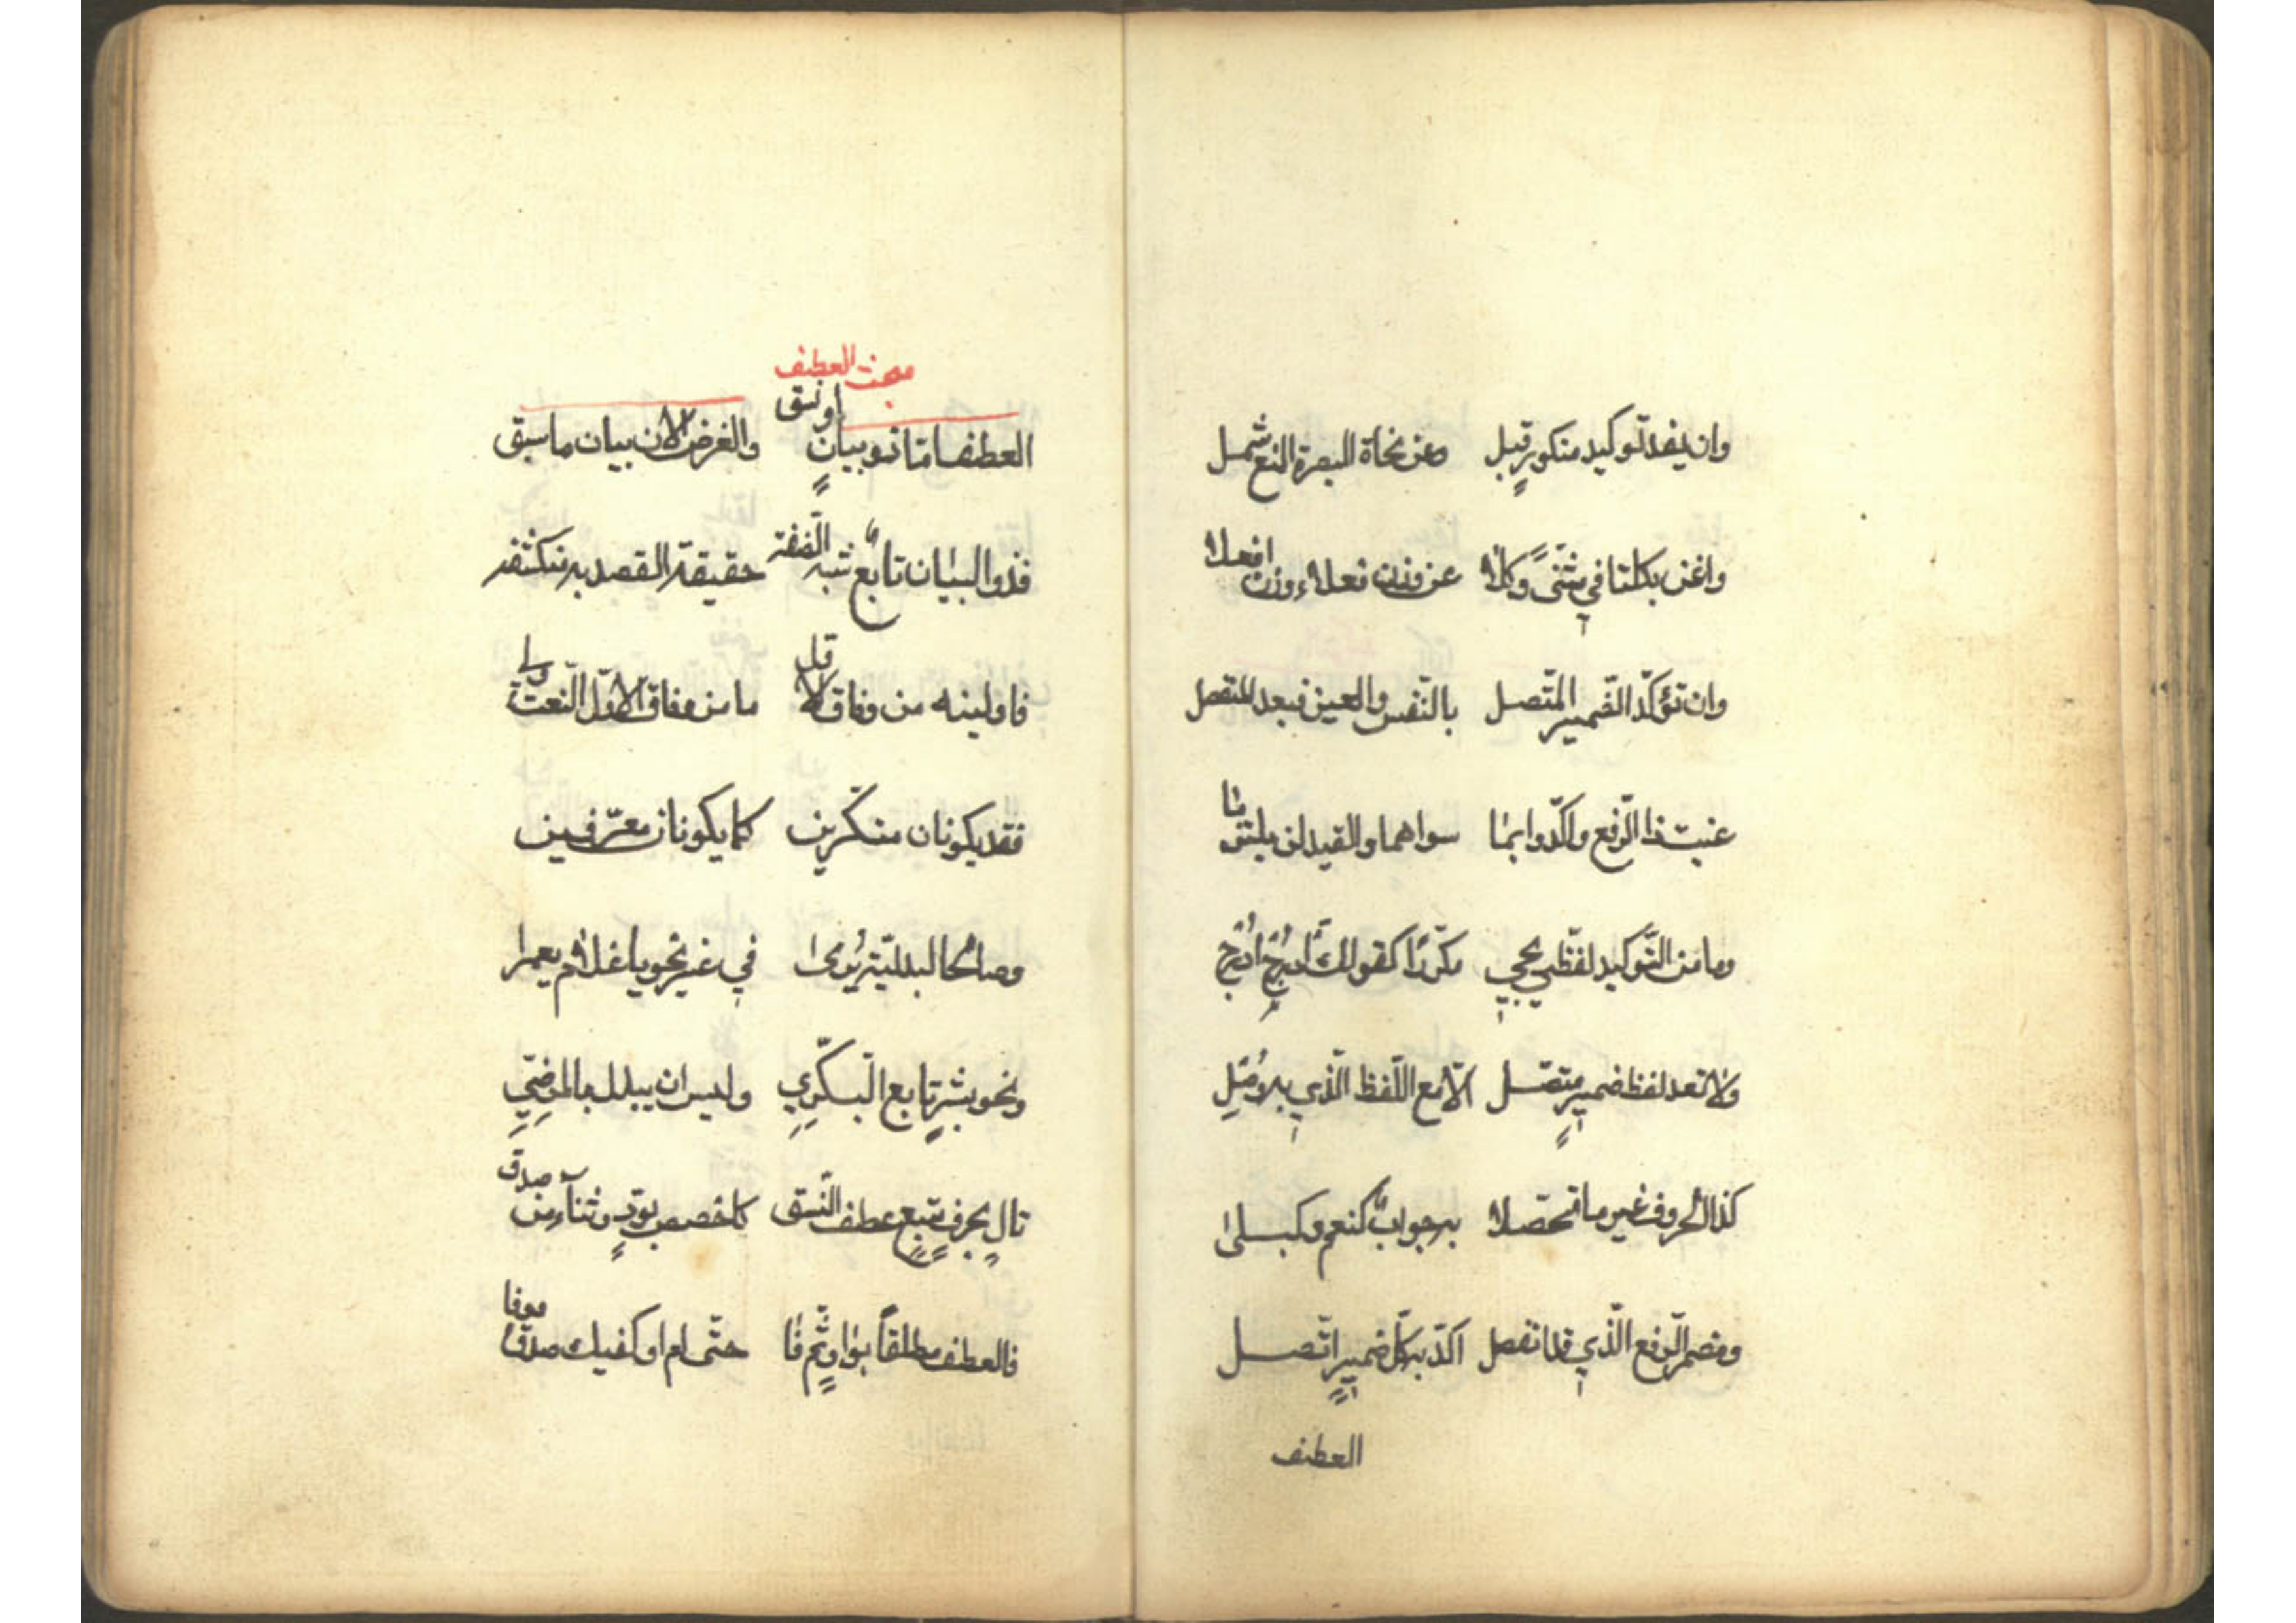 وان يفد توكيد منكور قبل وعن نحاة البصرة المنع شمل
واغن بكلتا في مثنّى وكلا عن وزن فعلاء ووزن افعلا
وان تؤكّد الضّمير المتّصل بالنّفس والعين فبعد المنفصل
عنيت ذا الرّفع واكّدوا بما سواهما والقيد لن يلتزما
وما من التّوكيد لفظي يجي مكرّرًا كقولك ادرجي ادرجي
ولا تعد لفظ ضمير متّصل الّا مع اللّفظ الّذي به وصل
كذا الحروف غير ما تحصّلا به جواب كنعم وكبلى
ومضمر الرّفع الّذي قد انفصل اكّد به كلّ ضمير اتّصل
العطف
مبحث العطف
العطف امّا ذو بيان او نسق والغرض الان بيان ما سبق
فذو البيان تابع شبه الصّفة حقيقة القصد به منكشفة
فاولينه من وفاق الاوّل ما من وفاق الاوّل النّعت ولي
فقد يكونان منكّرين كما يكونان معرّفين
وصالحا لبدليّة يرى في غير نحو يا غلام يعمرا
ونحو بشر تابع البكّري وليس ان يبدل بالمرضيّ
تال بحرف متبع عطف النّسق كاخصص بودّ وثناء من صدق
فالعطف مطلقاً بواو ثمّ فا حتّى ام او كفيك صدق ووفا